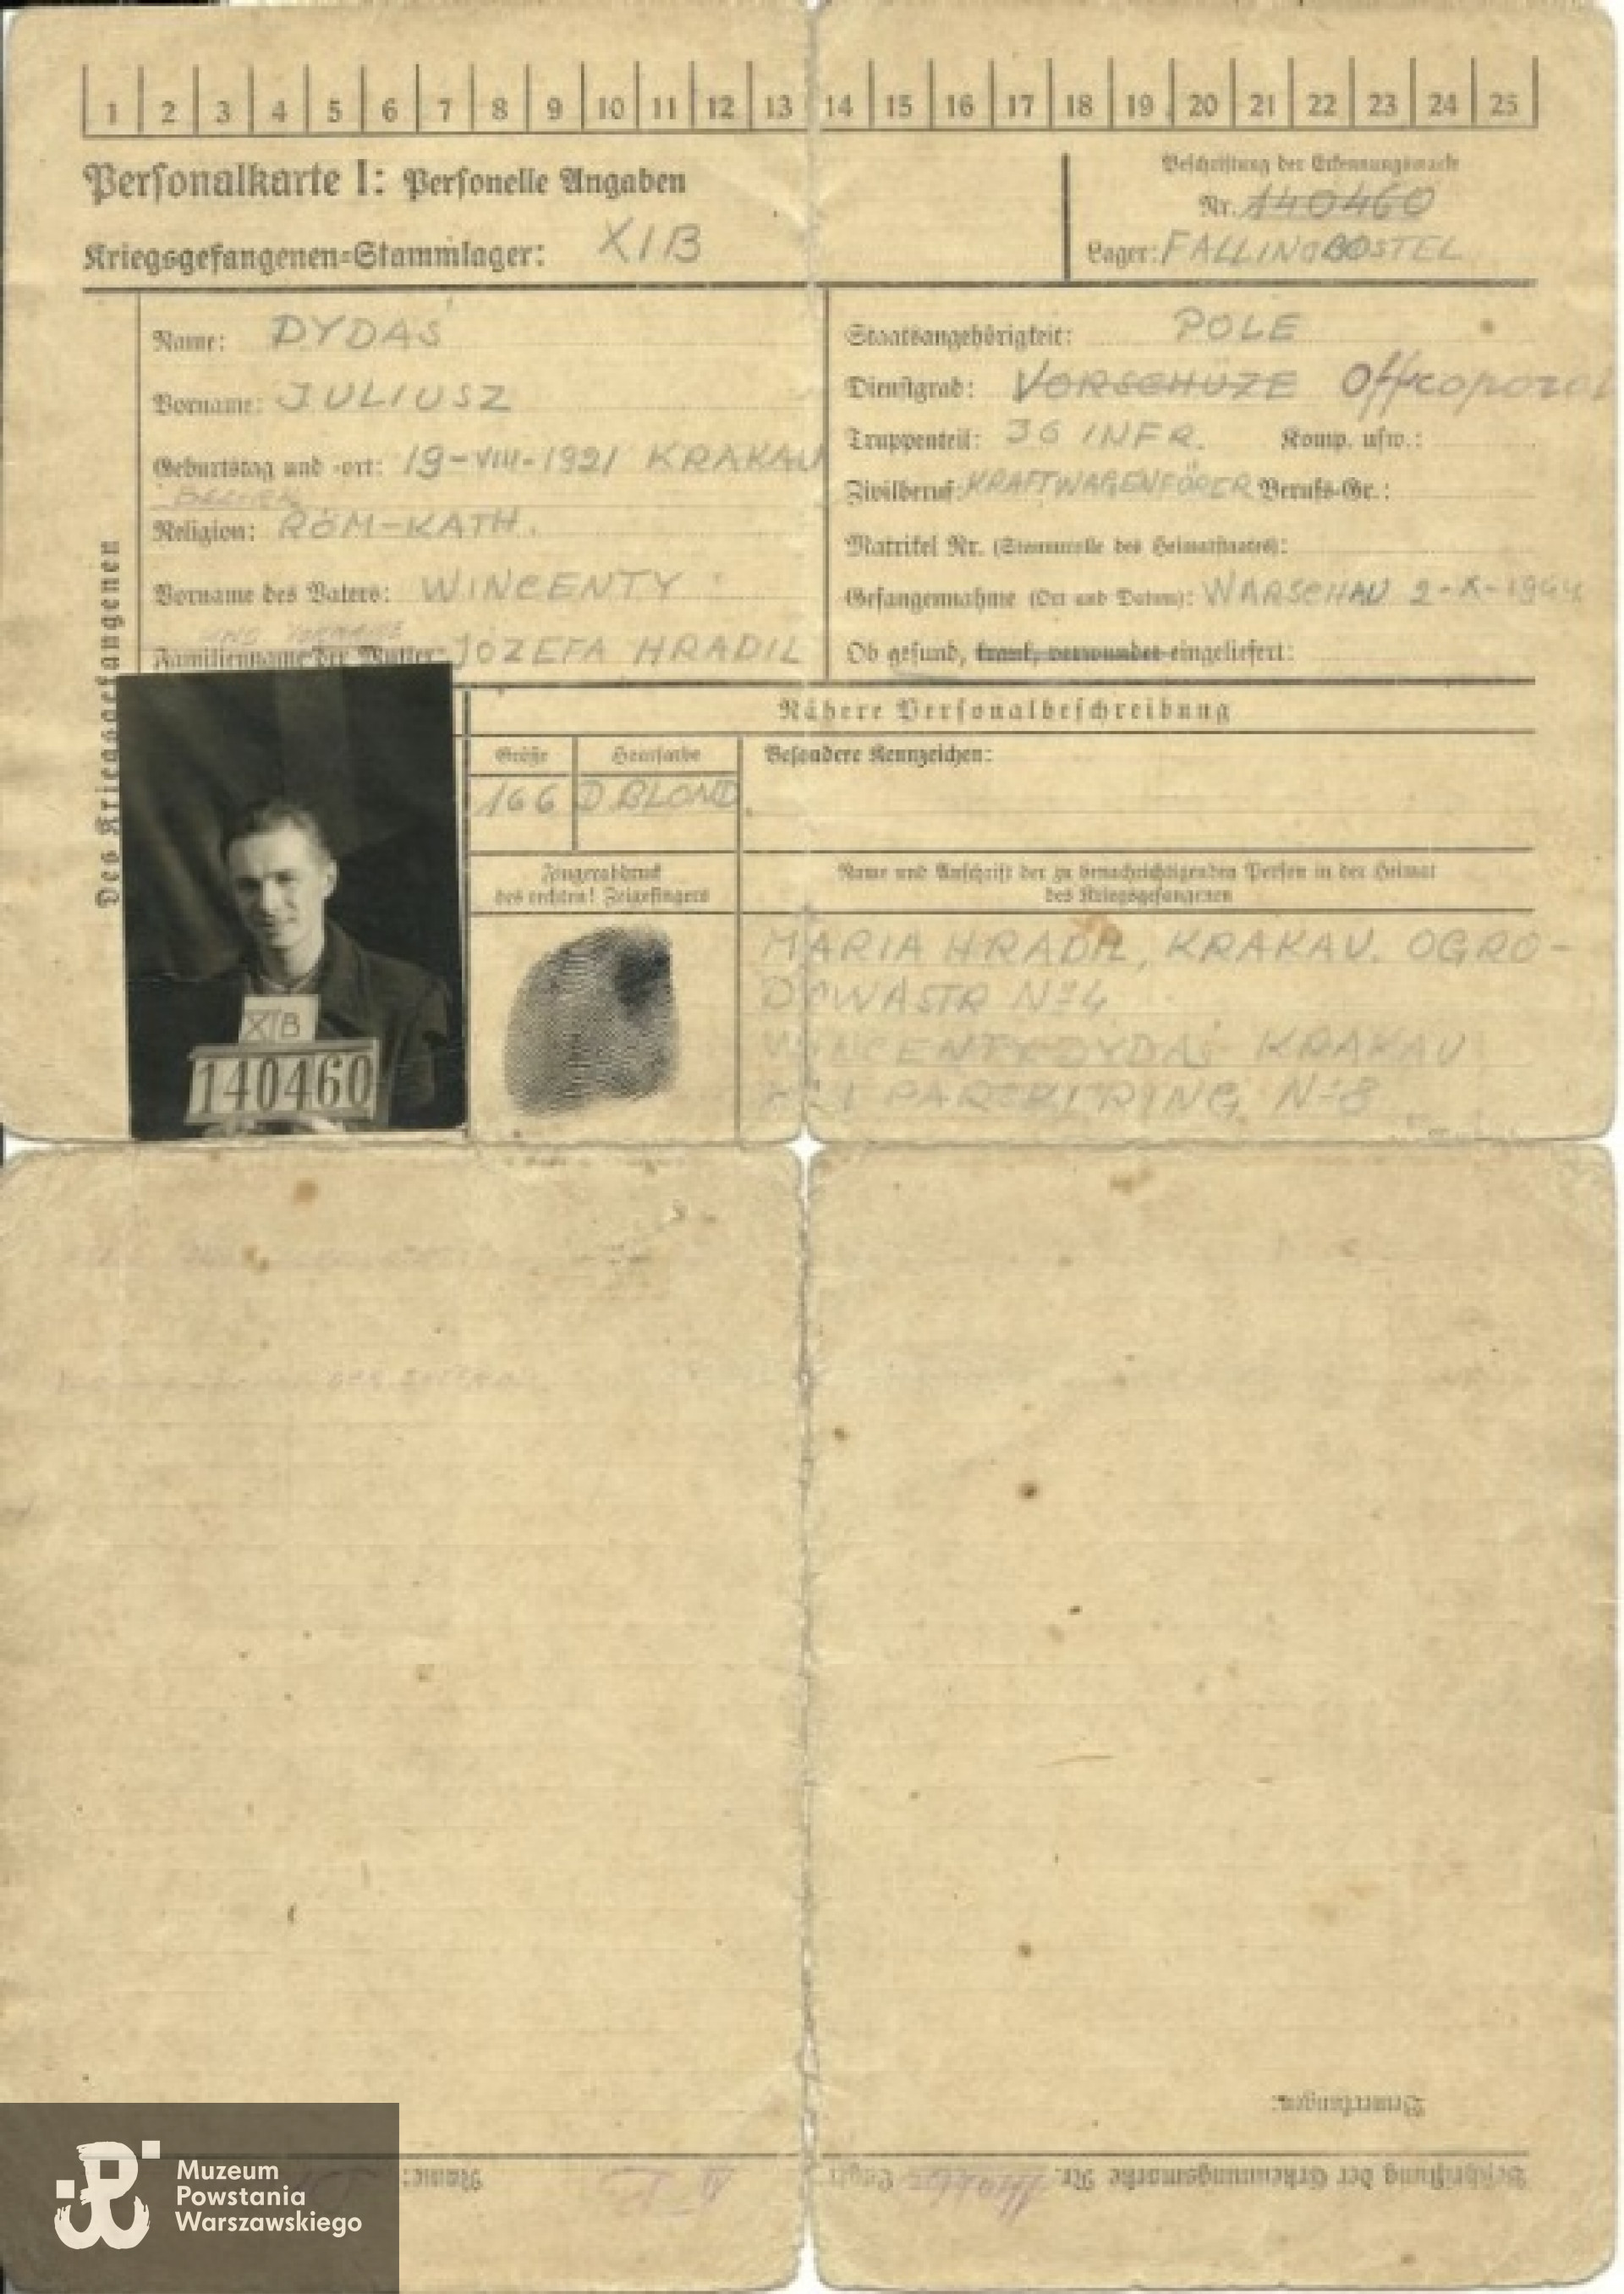 1 2 3 4 5 6 7 8 9 10 11 12 13 14 15 16 17 18 19 20 21 22 23 24 25
Personalkarte I: Personelle Angaben
Kriegsgefangenen-Stammlager: XIB
Beschriftung der Erkennungsmarke
Nr. 140460
Lager: FALLINGBOSTEL
Des Kriegsgefangenen
Name: DYDAŚ
Vorname: JULIUSZ
Geburtstag und -ort: 19-VIII-1921 KRAKAU
Religion: RÖM-KATH.
Vorname des Vaters: WINCENTY
UND VORNAME
Familienname der Mutter: JÓZEFA HRADIL
Staatsangehörigkeit: POLE
Dienstgrad: VORSCHÜZE
Truppenteil: 36 INFR. Komp. usw.:
Zivilberuf: KRAFTWAGENFÖRER Berufs-Gr.:
Matrikel Nr. (Stammrolle des Heimatstaates):
Gefangennahme (Ort und Datum): WARSCHAU 2-X-1944
Ob gesund, krank, verwundet eingeliefert:
Nähere Personalbeschreibung
Größe Haarfarbe Besondere Kennzeichen:
166 D.BLOND
Fingerabdruck
des rechten! Zeigefingers
Name und Anschrift der zu benachrichtigenden Person in der Heimat
des Kriegsgefangenen
MARIA HRADIL, KRAKAU. OGRO-
DOWASTR Nº 4
WINCENTY DYDAŚ KRAKAU
RING Nº 8
XIB
140460
Bemerkungen:
Beschriftung der Erkennungsmarke Nr. 140460 Lager:
Name:
Muzeum
Powstania
Warszawskiego